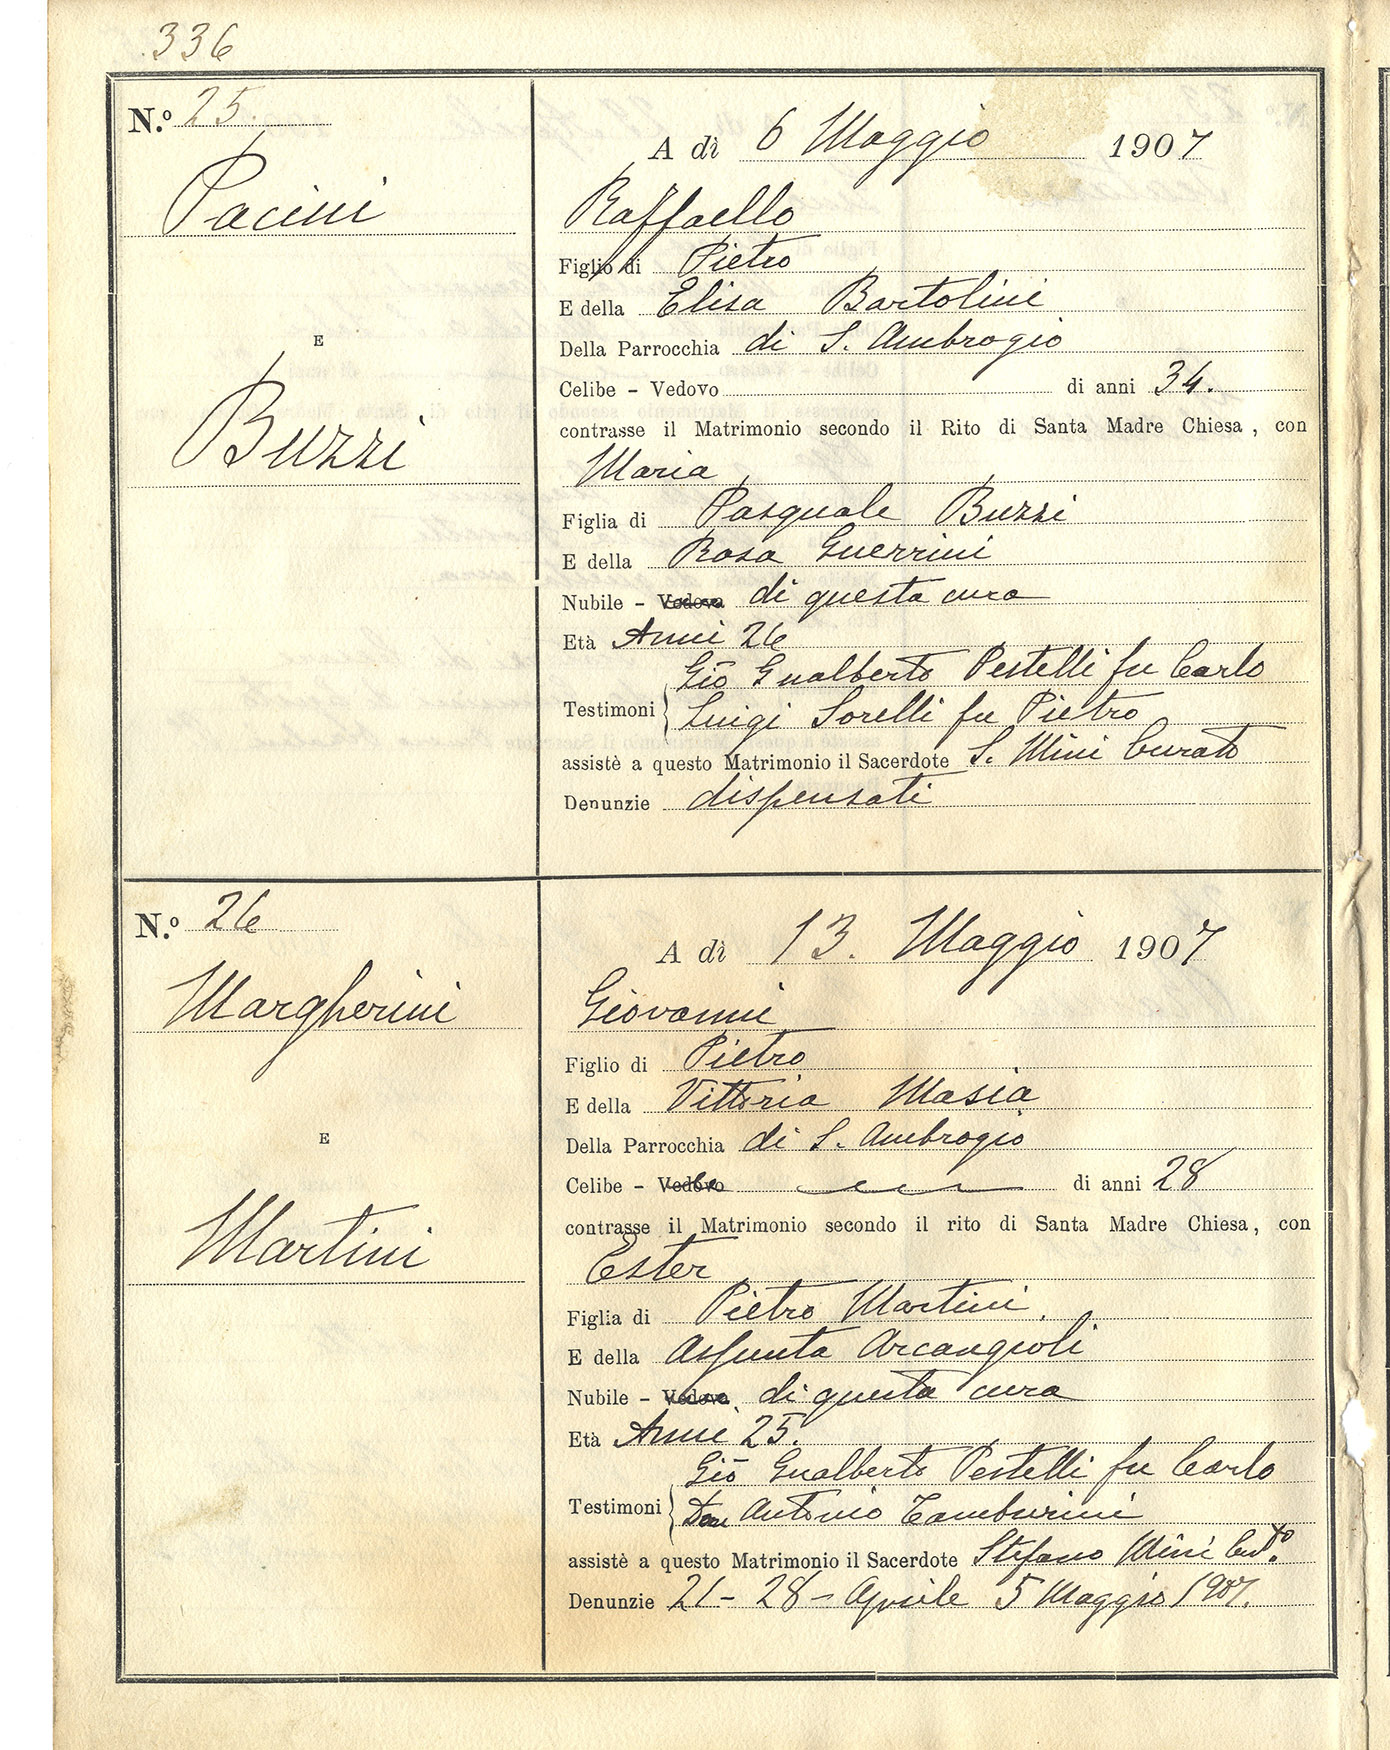 336
N.º 25.
Pacini
E
Buzzi
A dì 6 Maggio 1907
Raffaello
Figlio di Pietro
E della Elisa Bartolini
Della Parrocchia di S. Ambrogio
Celibe - Vedovo di anni 34.
contrasse il Matrimonio secondo il Rito di Santa Madre Chiesa, con
Maria
Figlia di Pasquale Buzzi
E della Rosa Guerrini
Nubile - Vedova di questa cura
Età Anni 26
Gio Gualberto Pestelli fu Carlo
Testimoni Luigi Sorelli fu Pietro
assistè a questo Matrimonio il Sacerdote S. Mini Curato
Denunzie dispensati
N.º 26
Margherini
E
Martini
A dì 13. Maggio 1907
Giovanni
Figlio di Pietro
E della Vittoria Masia
Della Parrocchia di S. Ambrogio
Celibe - Vedovo di anni 28
contrasse il Matrimonio secondo il rito di Santa Madre Chiesa, con
Ester
Figlia di Pietro Martini
E della Assunta Arcangioli
Nubile - Vedova di questa cura
Età Anni 25.
Gio Gualberto Pestelli fu Carlo
Testimoni Don Antonio Tamburini
assistè a questo Matrimonio il Sacerdote Stefano Mini Cur.to
Denunzie 21 - 28 - Aprile 5 Maggio 1907.